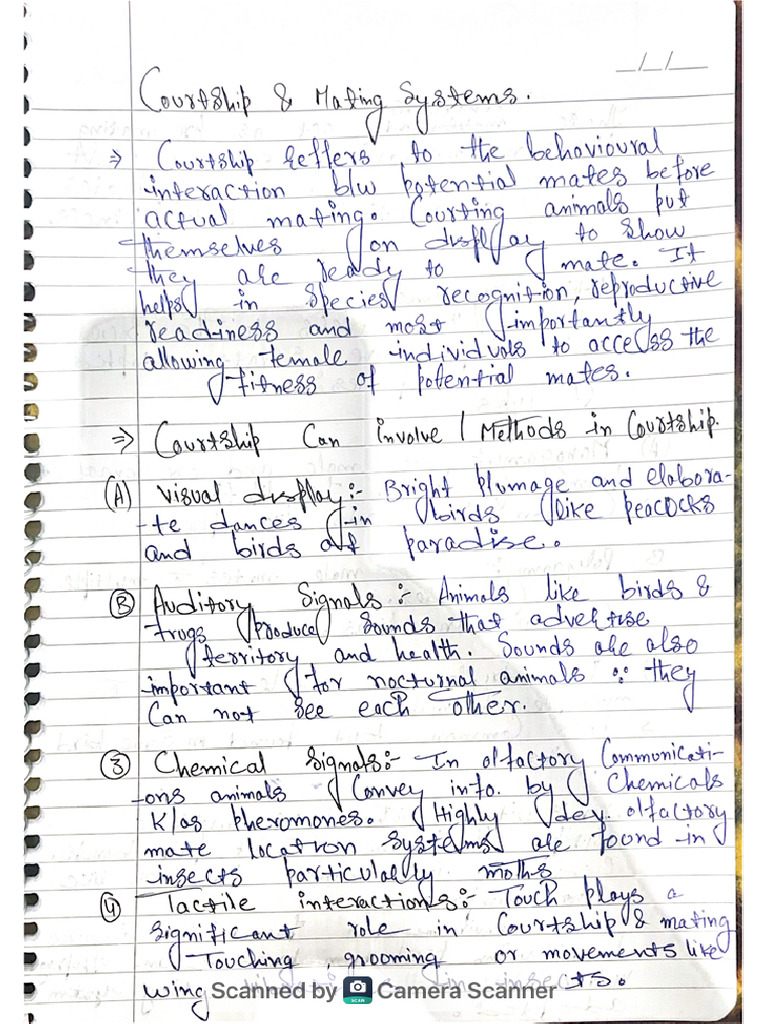 _/_/__
Courtship & Mating Systems.
⇒ Courtship reffers to the behavioural
interaction b/w potential mates before
actual mating. Courting animals put
themselves on display to show
they are ready to mate. It
helps in species recognition, reproductive
readiness and most importantly
allowing female individuals to access the
fitness of potential mates.
⇒ Courtship Can involve / Methods in Courtship.
(A) Visual display:- Bright plumage and elabora-
-te dances in birds like peacocks
and birds of paradise.
(B) Auditory Signals :- Animals like birds &
frogs produce sounds that advertise
territory and health. Sounds are also
important for nocturnal animals ∵ they
Can not see each other.
(3) Chemical Signals:- In olfactory Communicati-
-ons animals Convey info. by Chemicals
K/as Pheromones. Highly dev. olfactory
mate location systems are found in
insects particularly moths
(4) Tactile interactions:- Touch plays a
significant role in Courtship & mating
Touching, grooming or movements like
wing
Scanned by Camera Scanner